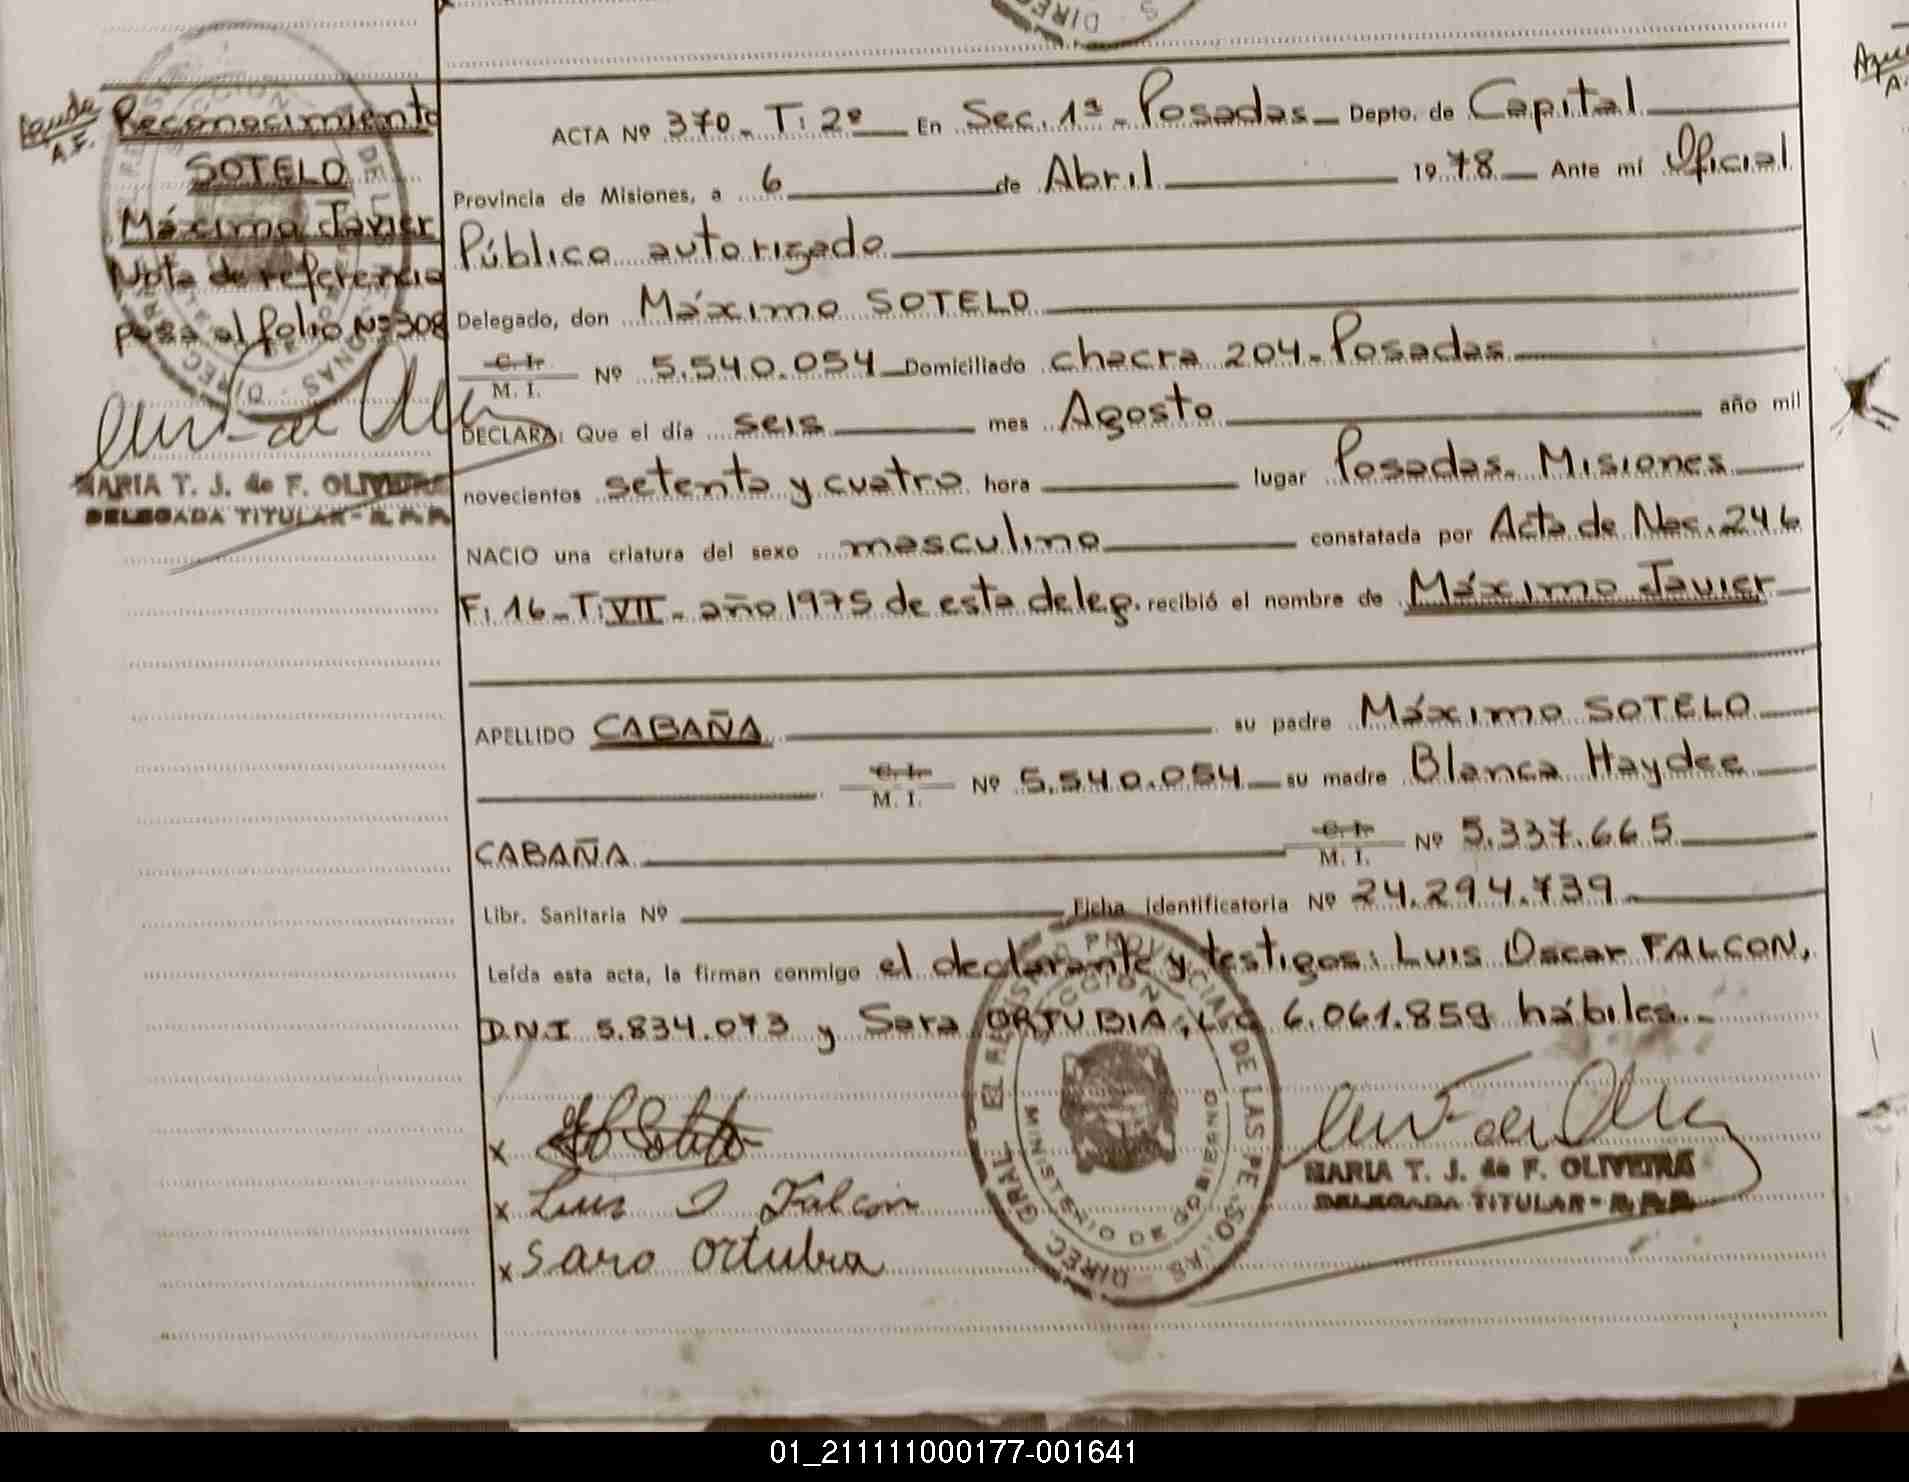 DIREC
S
Reconocimiento
SOTELO
Máximo Javier
Nota de referencia
pasa al folio Nº 308
MARIA T. J. de F. OLIVEIRA
DELEGADA TITULAR - R. P. P.
ACTA Nº 370 - T: 2º En Sec. 1ª - Posadas Depto. de Capital
Provincia de Misiones, a 6 de Abril 1978 Ante mí Oficial
Público autorizado
Delegado, don Máximo SOTELO
C. I.
M. I. Nº 5.540.054 Domiciliado chacra 204 - Posadas
DECLARA: Que el día seis mes Agosto año mil
novecientos setenta y cuatro hora lugar Posadas - Misiones
NACIO una criatura del sexo masculino constatada por Acta de Nac. 246
F: 16 - T: VII - año 1975 de esta deleg. recibió el nombre de Máximo Javier
APELLIDO CABAÑA su padre Máximo SOTELO
C. I.
M. I. Nº 5.540.054 su madre Blanca Haydee
CABAÑA C. I.
M. I. Nº 5.337.665
Libr. Sanitaria Nº Ficha identificatoria Nº 24.294.739
Leída esta acta, la firman conmigo el declarante y testigos: Luis Oscar FALCON,
D.N.I 5.834.073 y Sara ORTUBIA, L.C 6.061.859 hábiles. -
x
x Luis O Falcon
x Sara Ortubia
DIREC. GRAL. EL REGISTRO PROVINCIAL DE LAS PE.SO.AS
MINISTERIO DE GOBIERNO
MARIA T. J. de F. OLIVEIRA
DELEGADA TITULAR - R. P. P.
01_211111000177-001641